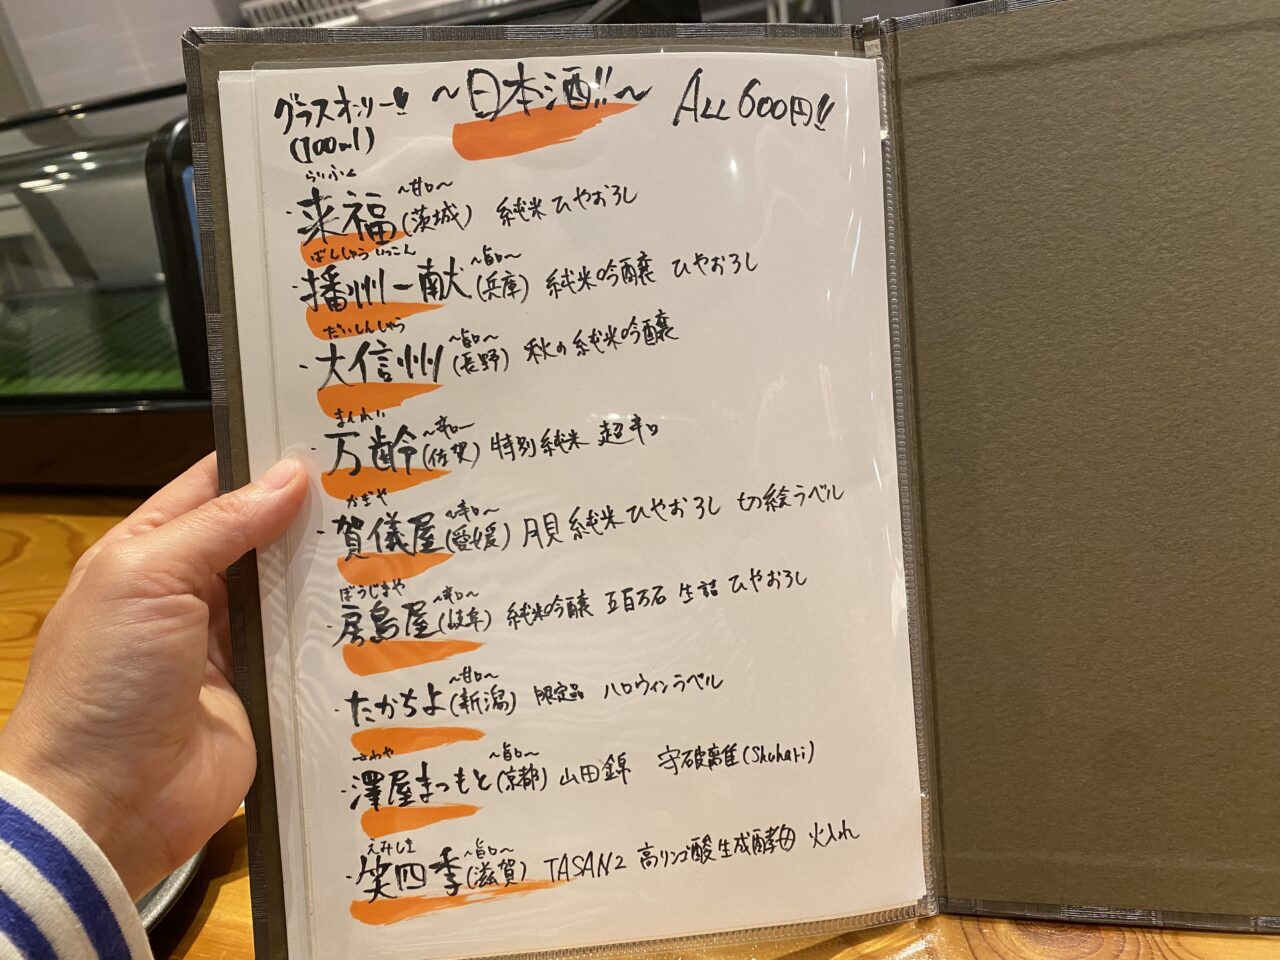 グラスオンリー!! ～日本酒!!～ ALL 600円!!
(100ml)
らいふく ～甘口～
・来福(茨城) 純米 ひやおろし
ばんしゅう いっこん ～旨口～
・播州一献(兵庫) 純米吟醸 ひやおろし
だいしんしゅう ～旨口～
・大信州(長野) 秋の純米吟醸
まんれい ～辛口～
・万齢(佐賀) 特別純米 超辛口
かぎや ～辛口～
・賀儀屋(愛媛) 月貝 純米ひやおろし 切り絵ラベル
ぼうじまや ～辛口～
・房島屋(岐阜) 純米吟醸 五百万石 生詰 ひやおろし
～甘口～
・たかちよ(新潟) 限定品 ハロウィンラベル
さわや ～旨口～
・澤屋まつもと(京都) 山田錦 守破離(Shuhari)
えみしき ～旨口～
・笑四季(滋賀) TASAN2 高リンゴ酸生成酵母 火入れ